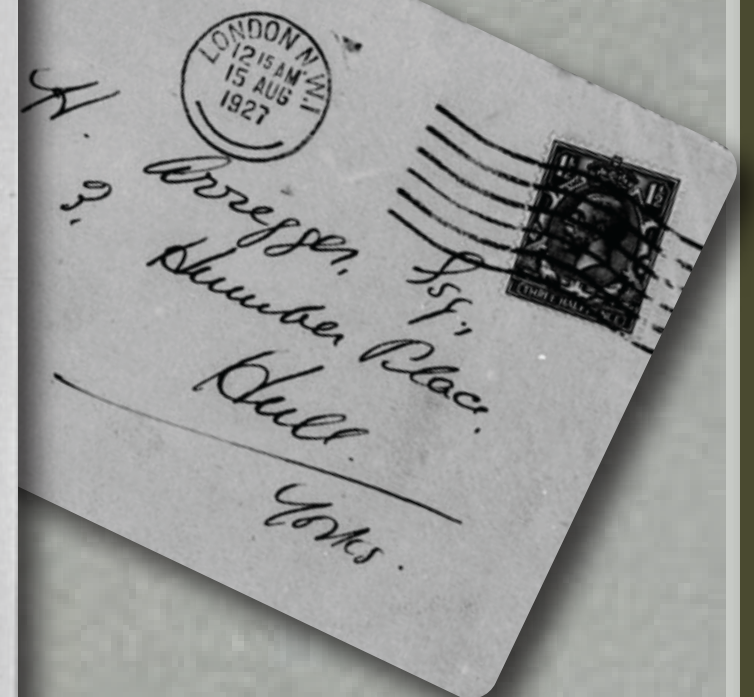 LONDON N.W.1
12 15 AM
15 AUG
1927
1½ 1½
THREE HALFPENCE
H. Arregger, Esq,
3, Humber Place,
Hull.
Yorks.